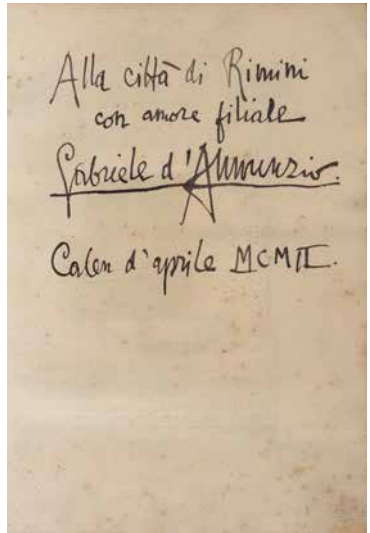 Alla città di Rimini
con amore filiale
Gabriele d'Annunzio.
Calen d'aprile MCMII.